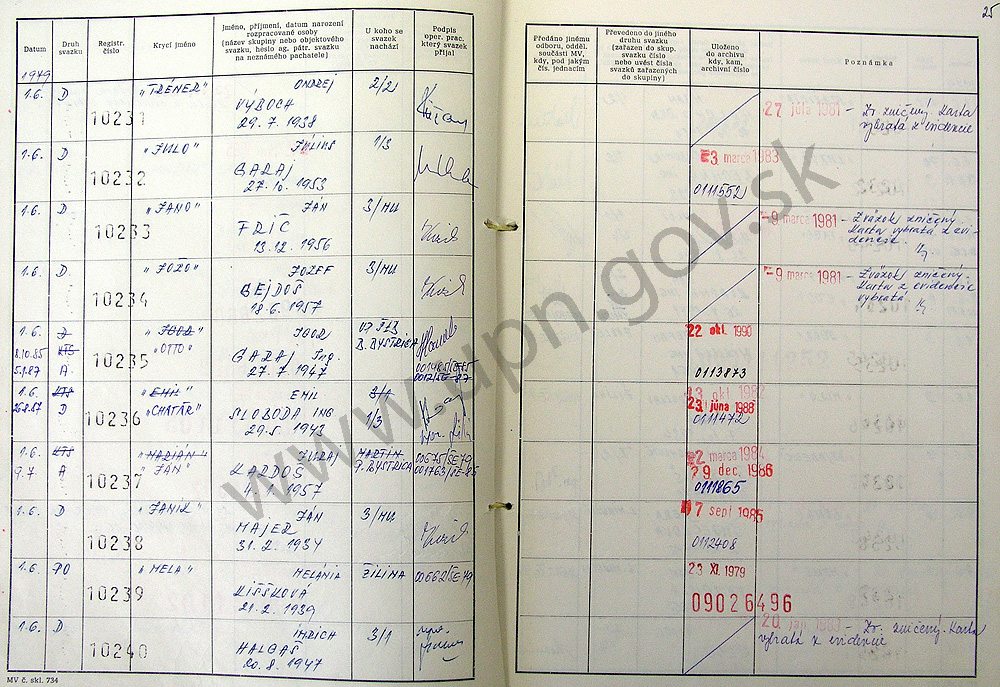 25
Datum
Druh svazku
Registr. číslo
Krycí jméno
Jméno, příjmení, datum narození
rozpracované osoby
(název skupiny nebo objektového
svazku, heslo ag. pátr. svazku
na neznámého pachatele)
U koho se
svazek
nachází
Podpis
oper. prac.
který svazek
přijal
Předáno jinému
odboru, odděl.
součásti MV,
kdy, pod jakým
čís. jednacím
Převedeno do jiného
druhu svazku
(zařazen do skup.
svazku číslo
nebo uvést čísla
svazků zařazených
do skupiny)
Uloženo
do archivu
kdy, kam,
archivní číslo
Poznámka
1979
1.6. D 10231 "TRÉNER" ONDREJ 2/21
VÝBOCH
29. 7. 1938
27 júla 1981 - Zv. zničený. Karta
vybratá z evidencie
1.6. D 10232 "JULO" JÚLIUS 1/3
GARAJ
27. 10. 1953
3 marca 1983
0111552
1.6. D 10233 "JANO" JÁN 3/HU
FRIČ
13. 12. 1956
-9 marca 1981 - Zväzok zničený.
Karta vybratá z evi-
dencie.
1.6. D. 10234 "JOŽO" JOZEF 3/HU
BEJDOŠ
18. 6. 1957
-9 marca 1981 - Zväzok zničený.
Karta z evidencie
vybratá
1.6. D 10235 "IGOR" IGOR
8.10.85 KTS "OTTO" GARAJ Ing. B. BYSTRICA
5.1.87 A. 27. 7. 1947
22 okt. 1990
0113873
1.6. KTS 10236 "EMIL" EMIL 3/1
26.8.87 D "CHATÁR" SLOBODA ING 1/3
29. 5. 1943
23. júna 1988
0111472
1.6. KTS 10237 "MARIÁN" JURAJ MARTIN 00675/SE-79
9.7. A "JÁN" KARDOŠ P. BYSTRICA 001763/SE-85
1957
22 marca 1984
29 dec. 1986
0111865
1.6. D 10238 "JANÍK" JÁN 3/HU
MAJER
31. 2. 1934
17 sept 1985
0112408
1.6. PO 10239 "MELA" MELÁNIA ŽILINA 00662/SE-79
KIŠŠKOVÁ
21. 2. 1939
23 XI. 1979
09026496
1.6. D. 10240 INDRICH 3/1
HALGAŠ
20. 8. 1947
20 jan. 1983 - Zv. zničený. Karta
vybratá z evidencie
MV č. skl. 734
www.upn.gov.sk